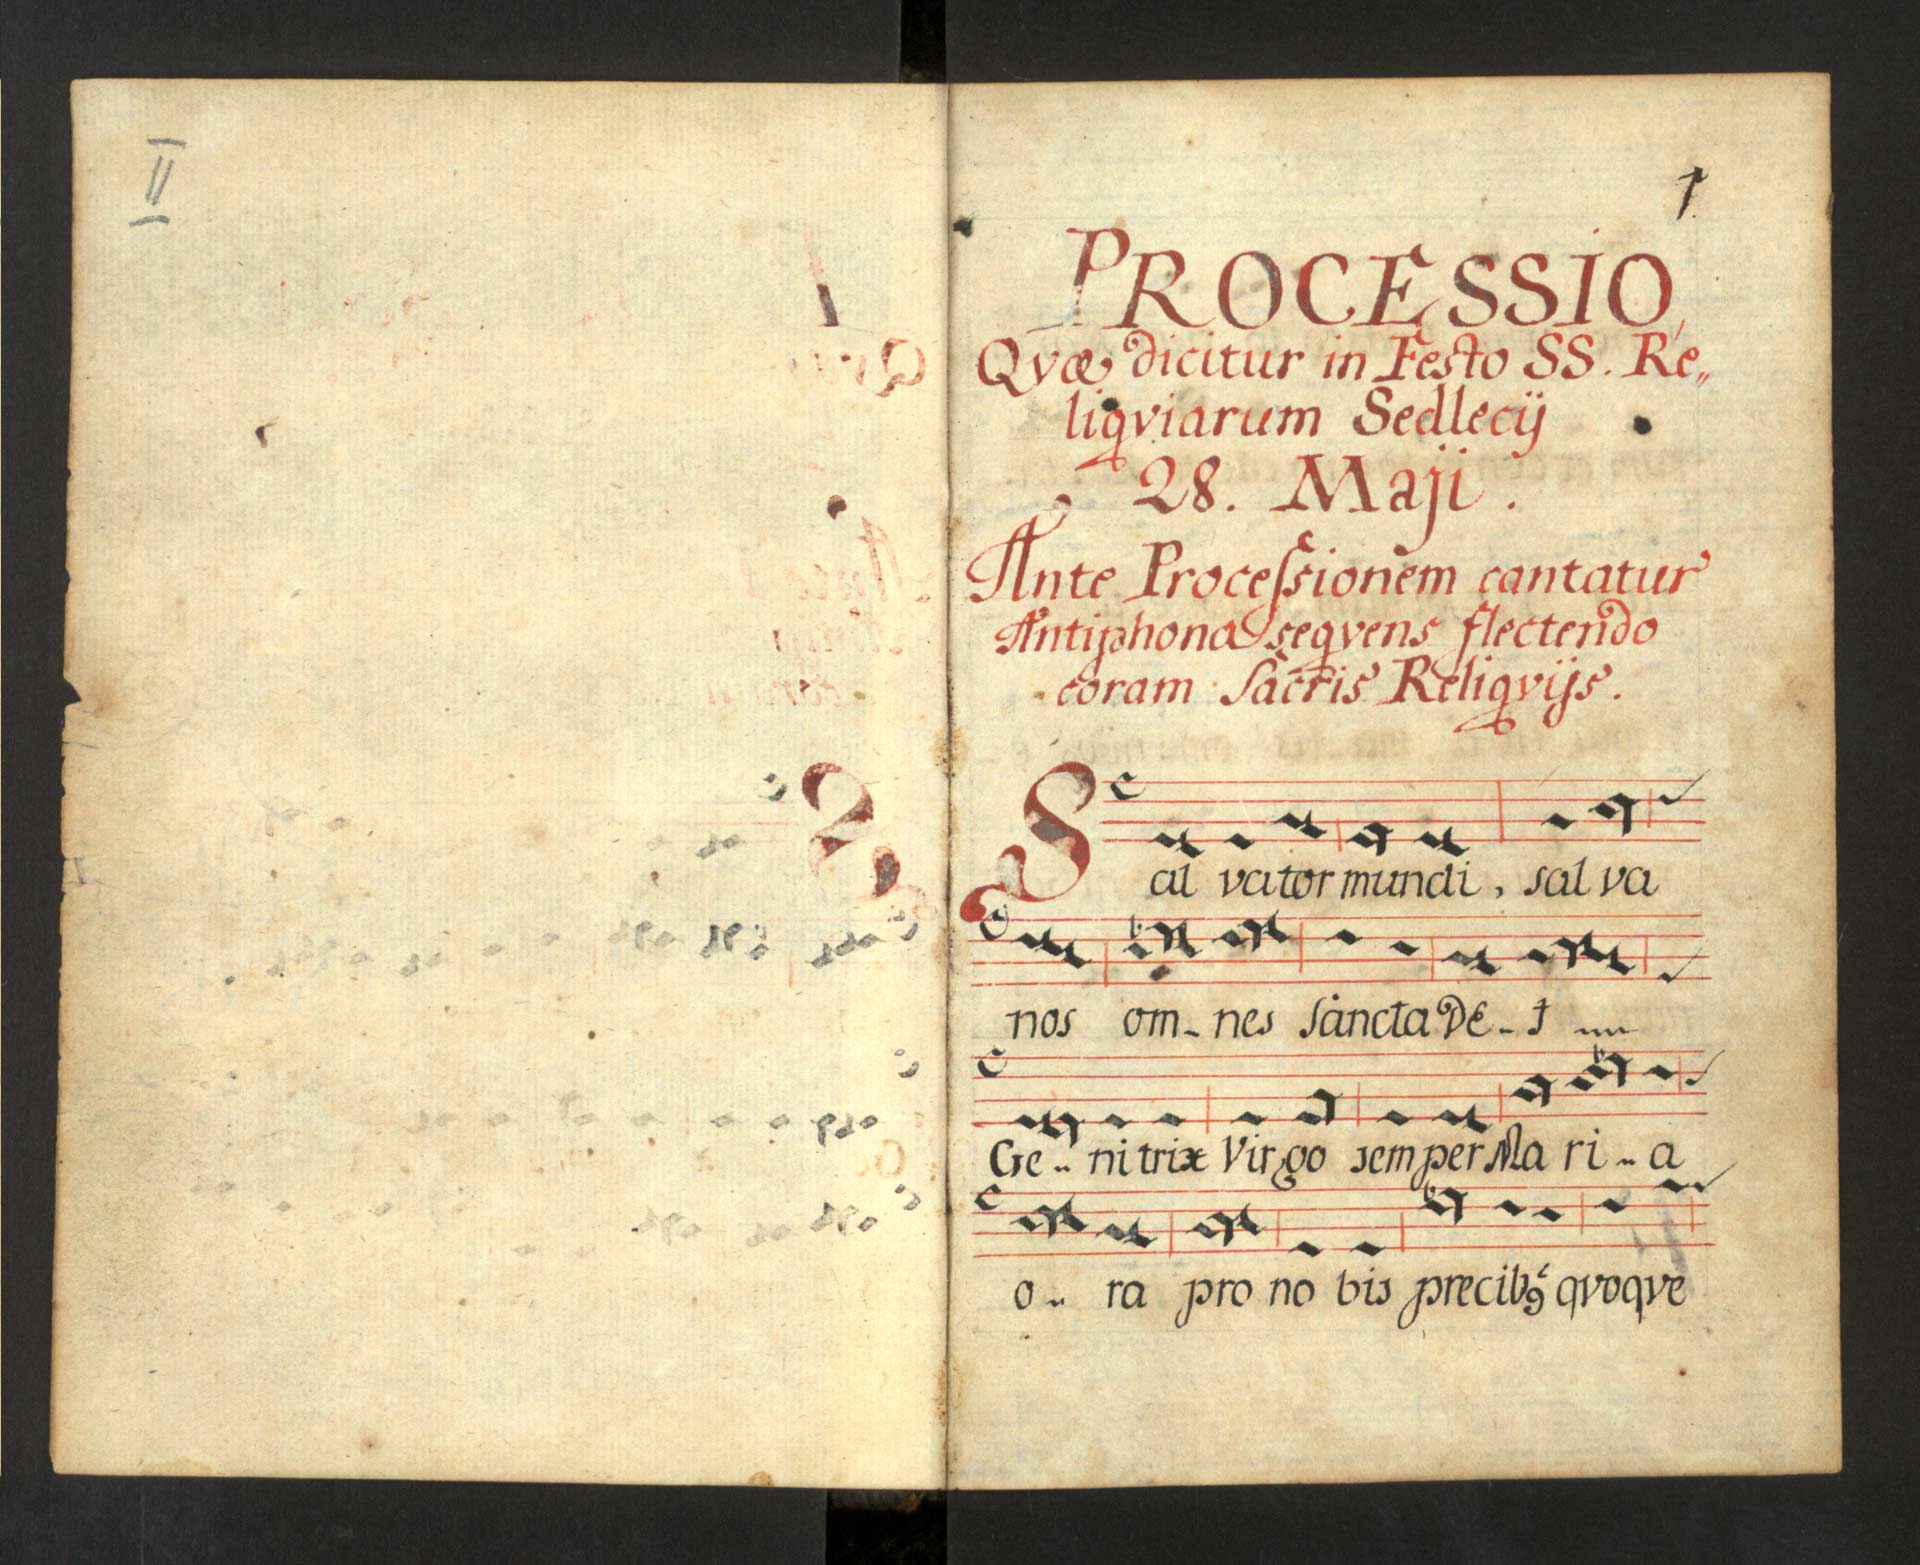 II
1
PROCESSIO,
Qvæ dicitur in Festo SS. Re„
liqviarum Sedlecij
28. Maji.
Ante Processionem cantatur
Antiphona seqvens flectendo
coram Sacris Reliqvijs.
Sal vator mundi, sal va
nos om- nes sancta De- i
Ge- ni trix Virgo semper Ma ri- a
o- ra pro no bis precibꝰ qvoqve